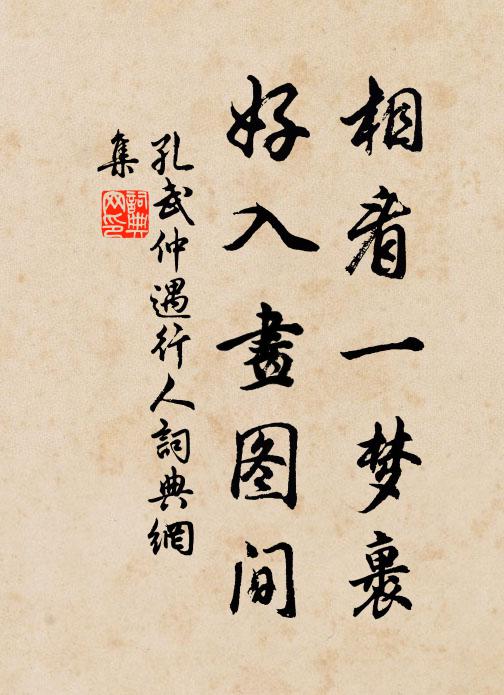 相看一梦裏
好入畫图间
孔武仲遇行人詞典網
集
詞典网印